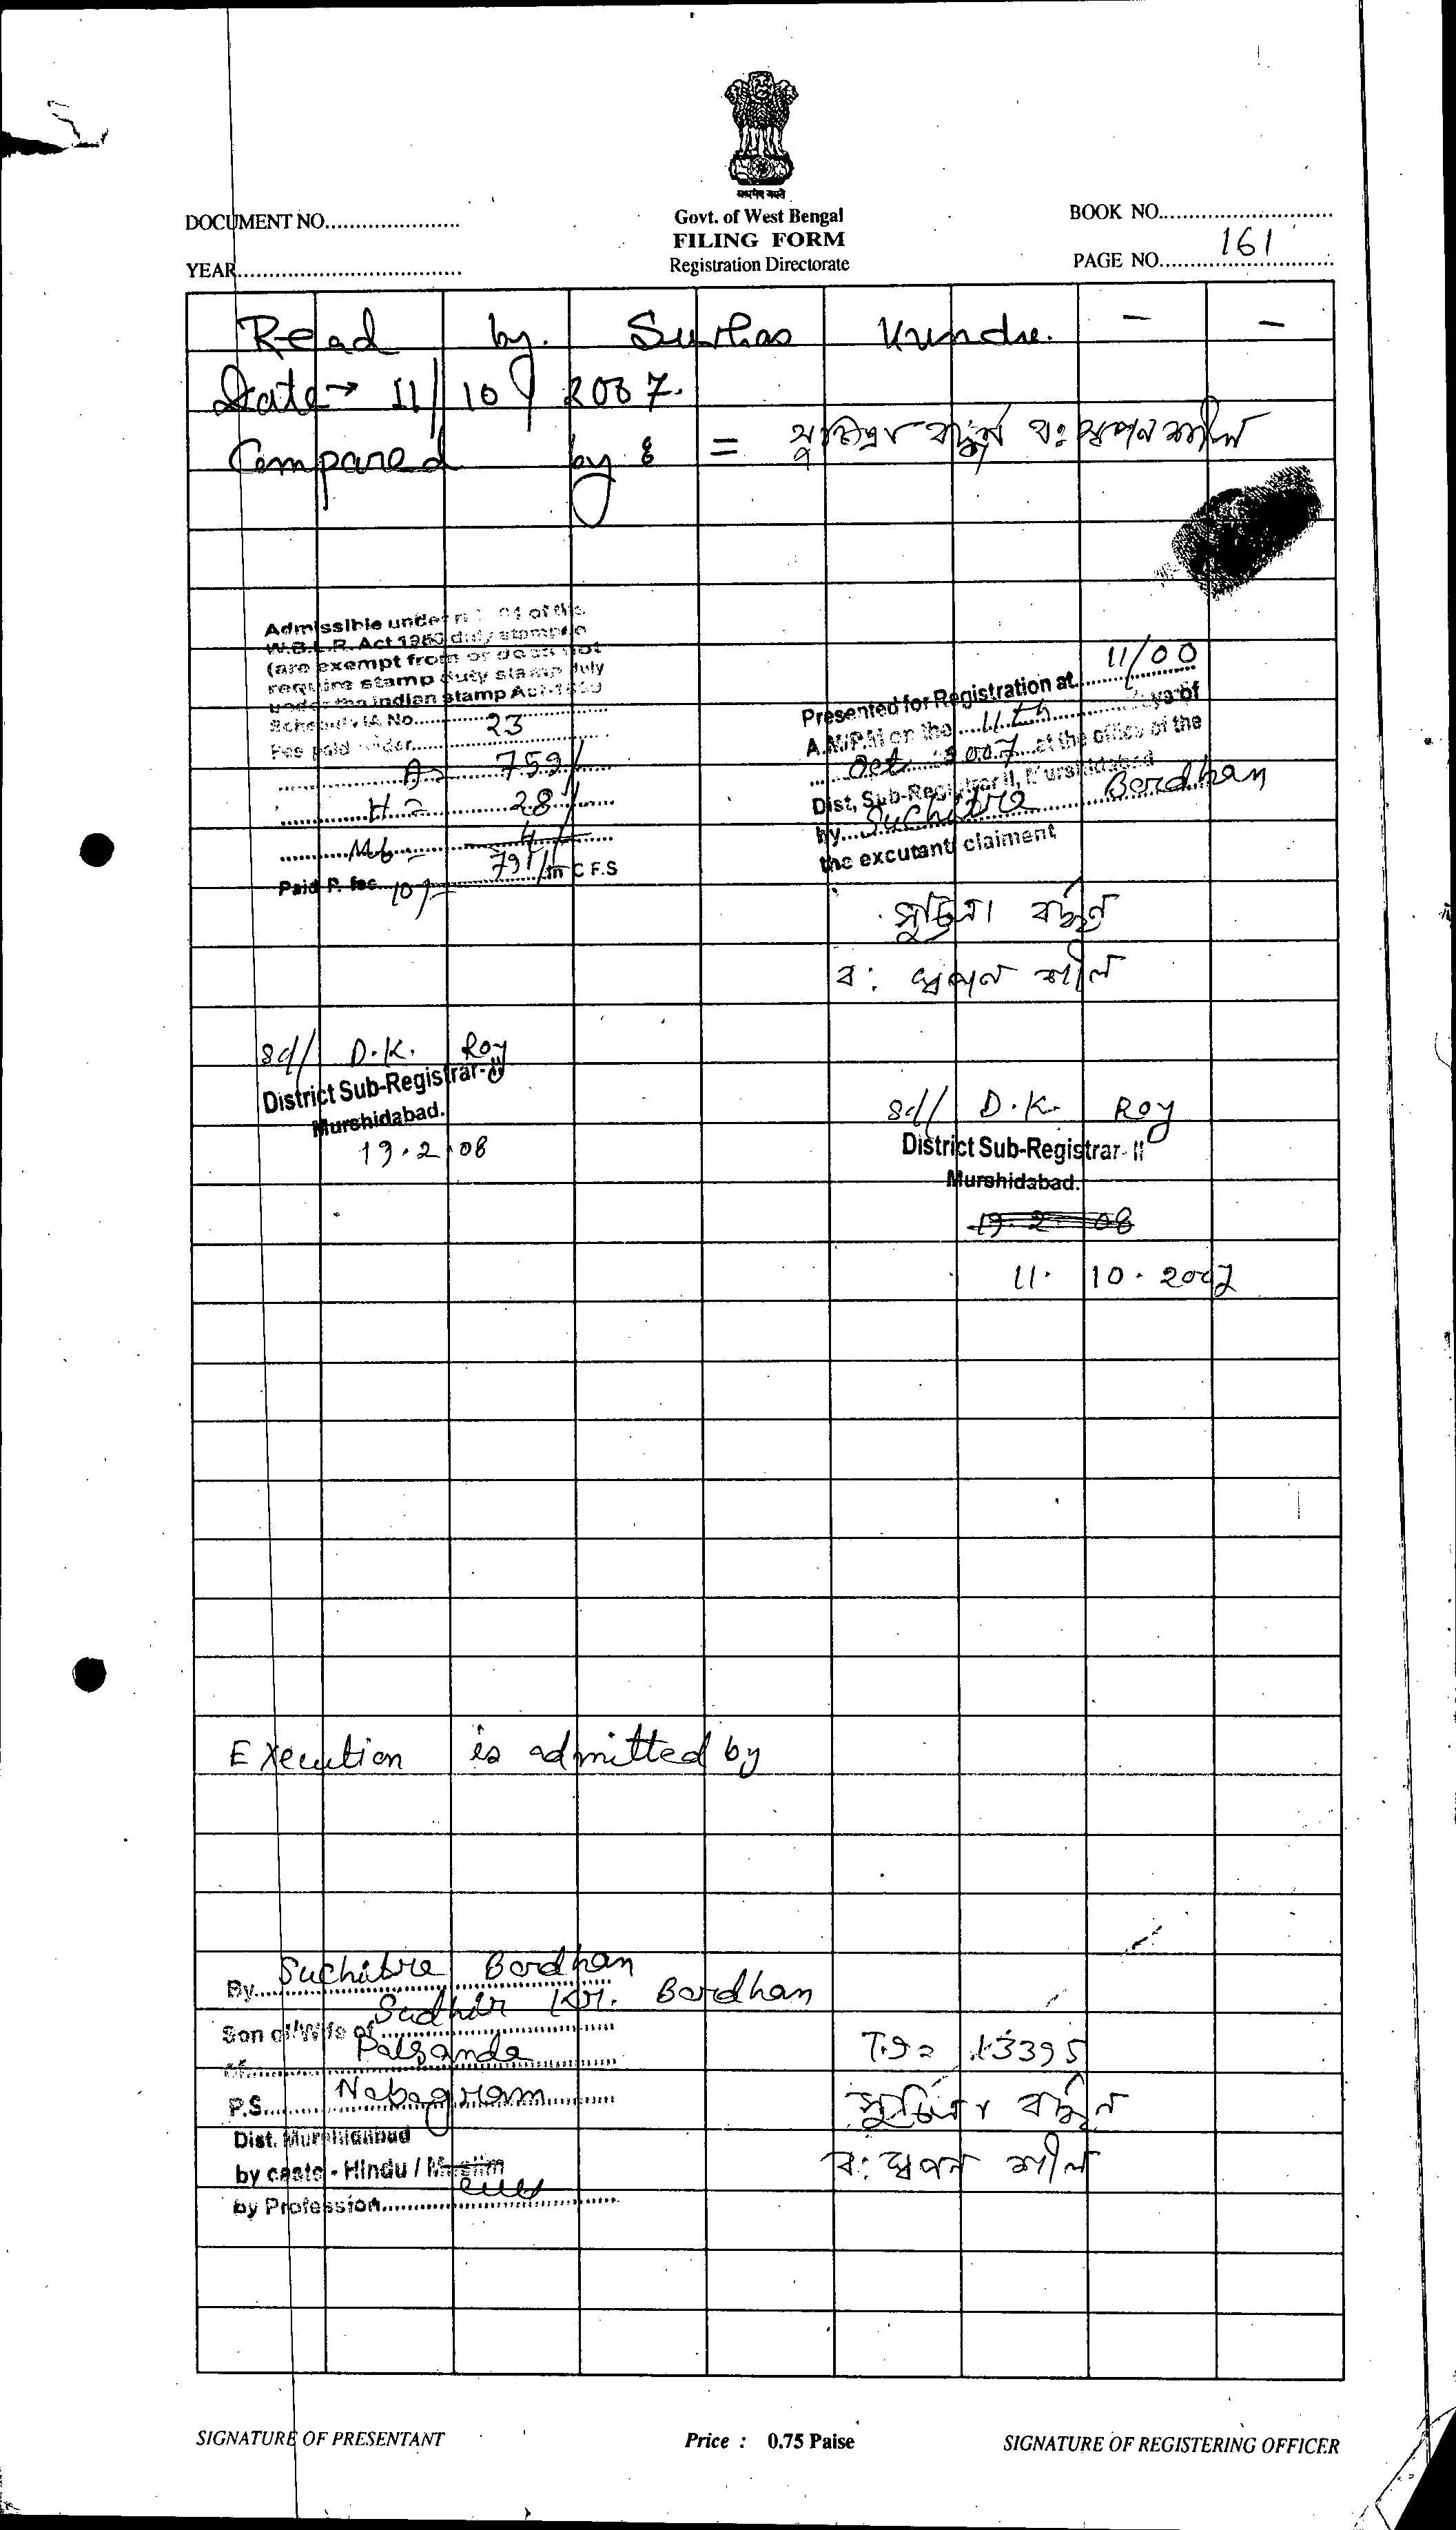 सत्यमेव जयते
DOCUMENT NO......................
Govt. of West Bengal
BOOK NO............................
FILING FORM
YEAR....................................
Registration Directorate
PAGE NO. 161
Read by. Suhas Kundu. - -
Date → 11/10/2007.
Compared by : = সুচিত্রা বর্দ্ধন বঃ স্বপন শীল
Admissible under of the
W.B.L.R. Act 19 duly stamped
(are exempt from or does not
require stamp duty stamp duty
under the Indian stamp Act
Schedule IA No. 23
Fee paid under
A = 759/
H = 28/
Mb = 4/
791/- in C.F.S
Paid P. fee 10/-
11/00
Presented for Registration at
A.M/P.M on the 11th day of
Oct 2007 at the office of the
Dist, Sub-Registrar II, Murshidabad
by Suchitra Bordhan
the excutant/ claiment
সুচিত্রা বর্দ্ধন
ব: স্বপন শীল
Sd/ D.K. Roy
District Sub-Registrar-II
Murshidabad.
19.2.08
Sd/ D.K. Roy
District Sub-Registrar-II
Murshidabad.
19.2.08
11.10.2007
Execution is admitted by
By Suchitra Bordhan
Son of/Wife of Sudhir Kr. Bordhan
of Palsanda
P.S. Nabagram
Dist. Murshidabad
by caste - Hindu / Muslim
by Profession
T.I = 13395
সুচিত্রা বর্দ্ধন
ব: স্বপন শীল
SIGNATURE OF PRESENTANT
Price : 0.75 Paise
SIGNATURE OF REGISTERING OFFICER